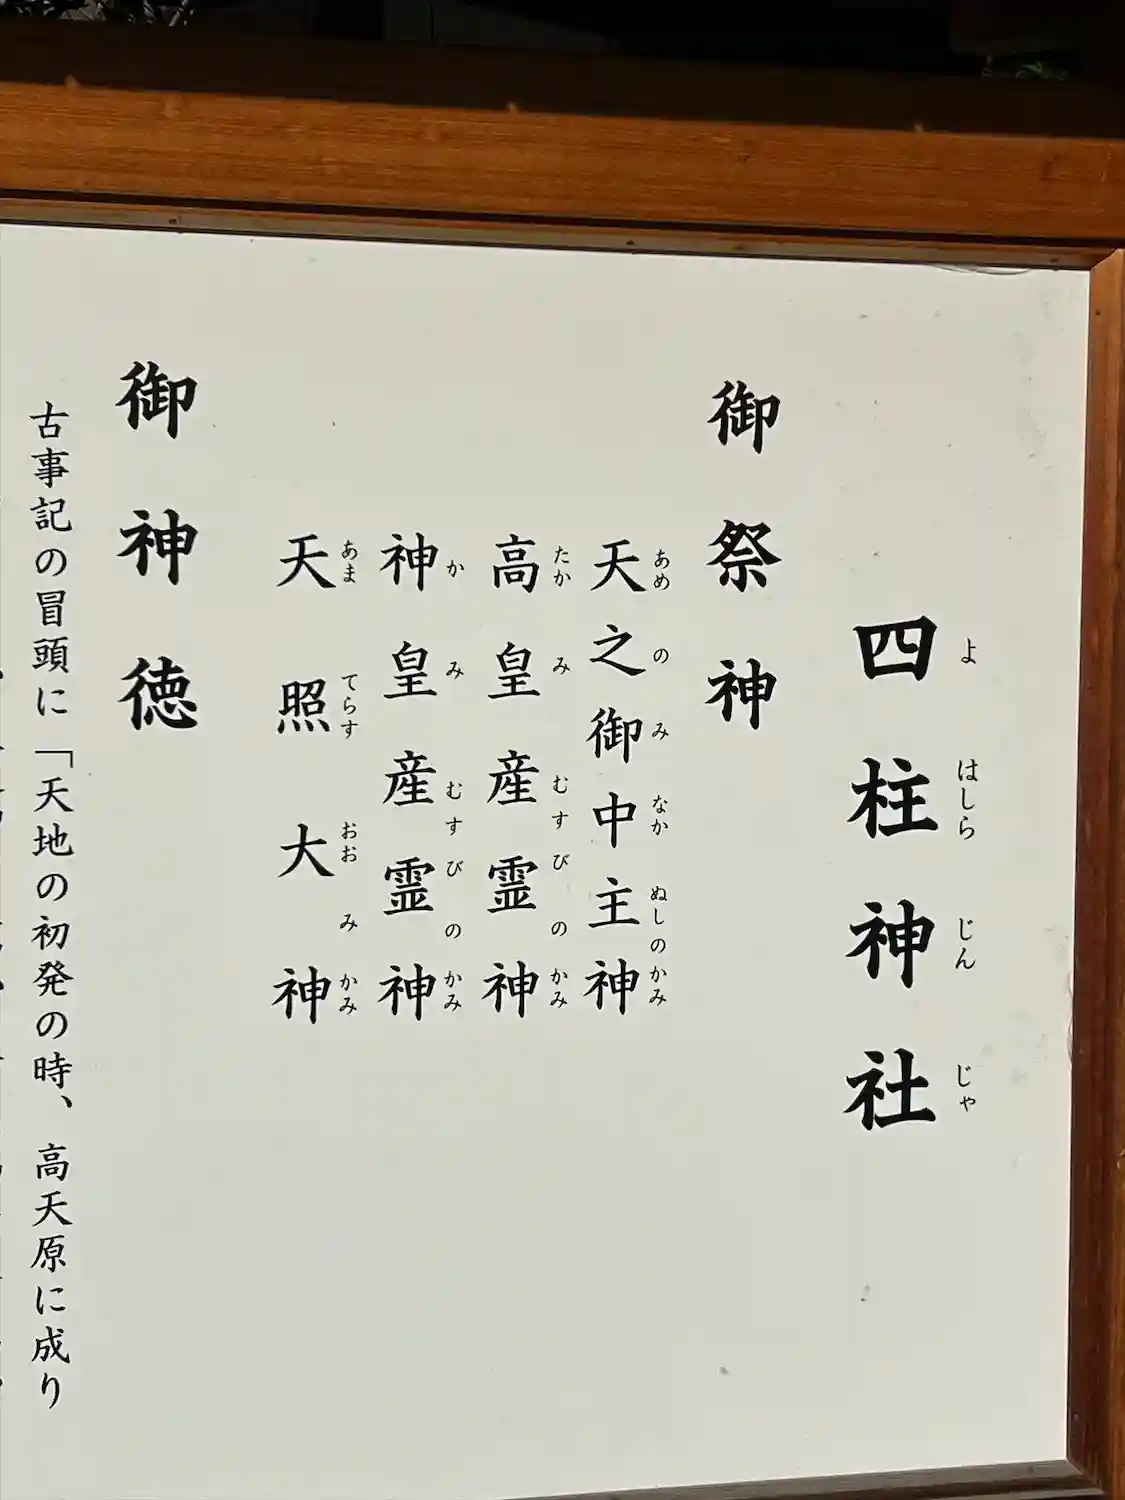 四柱神社
よはしらじんじゃ
御祭神
天之御中主神
あめのみなかぬしのかみ
高皇産霊神
たかみむすびのかみ
神皇産霊神
かみむすびのかみ
天照大神
あまてらすおおみかみ
御神徳
古事記の冒頭に「天地の初発の時、高天原に成り